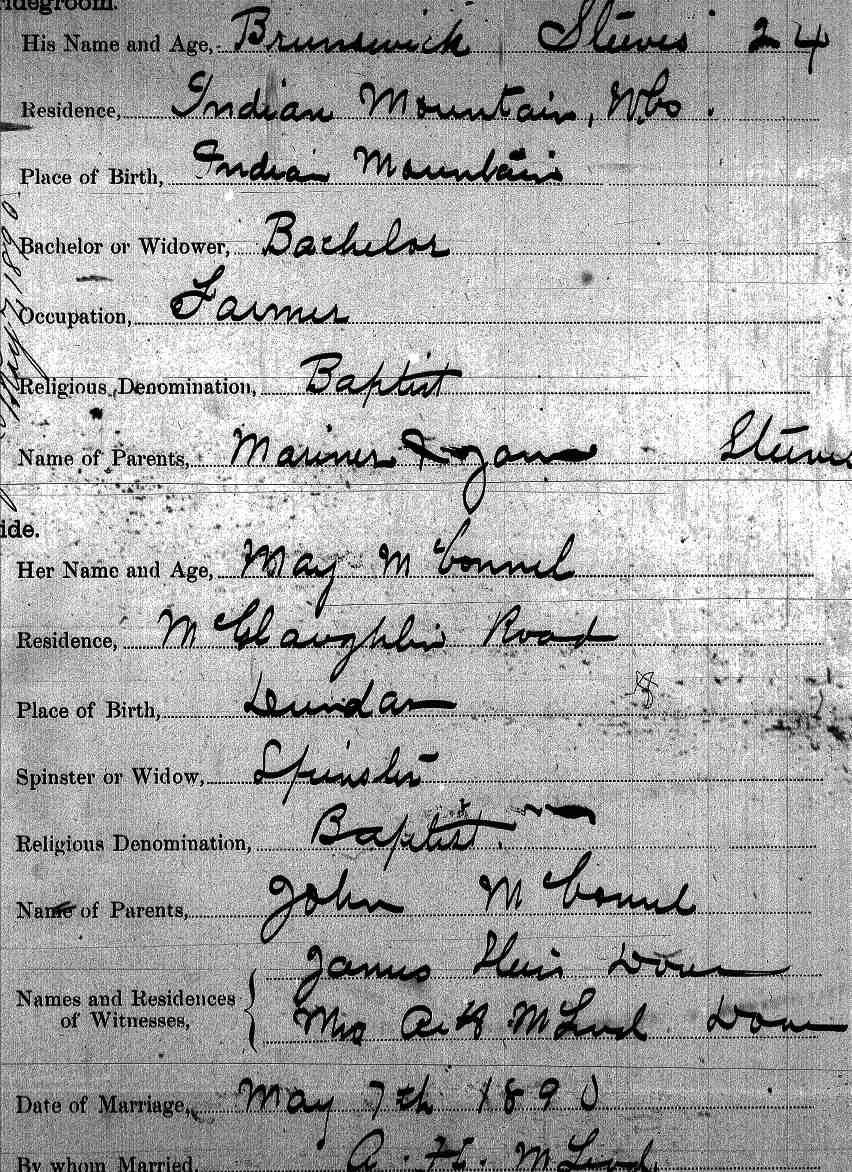 ridegroom.
His Name and Age, Brunswick Steeves 24
Residence, Indian Mountain, W.Co.
Place of Birth, Indian Mountain
Bachelor or Widower, Bachelor
Occupation, Farmer
Religious Denomination, Baptist
Name of Parents, Mariner & Jane Steeves
ide.
Her Name and Age, May McConnel
Residence, McGlaughlin Road
Place of Birth, Dundas
Spinster or Widow, Spinster
Religious Denomination, Baptist
Name of Parents, John McConnel
James Dover
Names and Residences
of Witnesses, Mrs A H McLeod Dover
Date of Marriage, May 7th 1890
By whom Married, A. H. McLeod